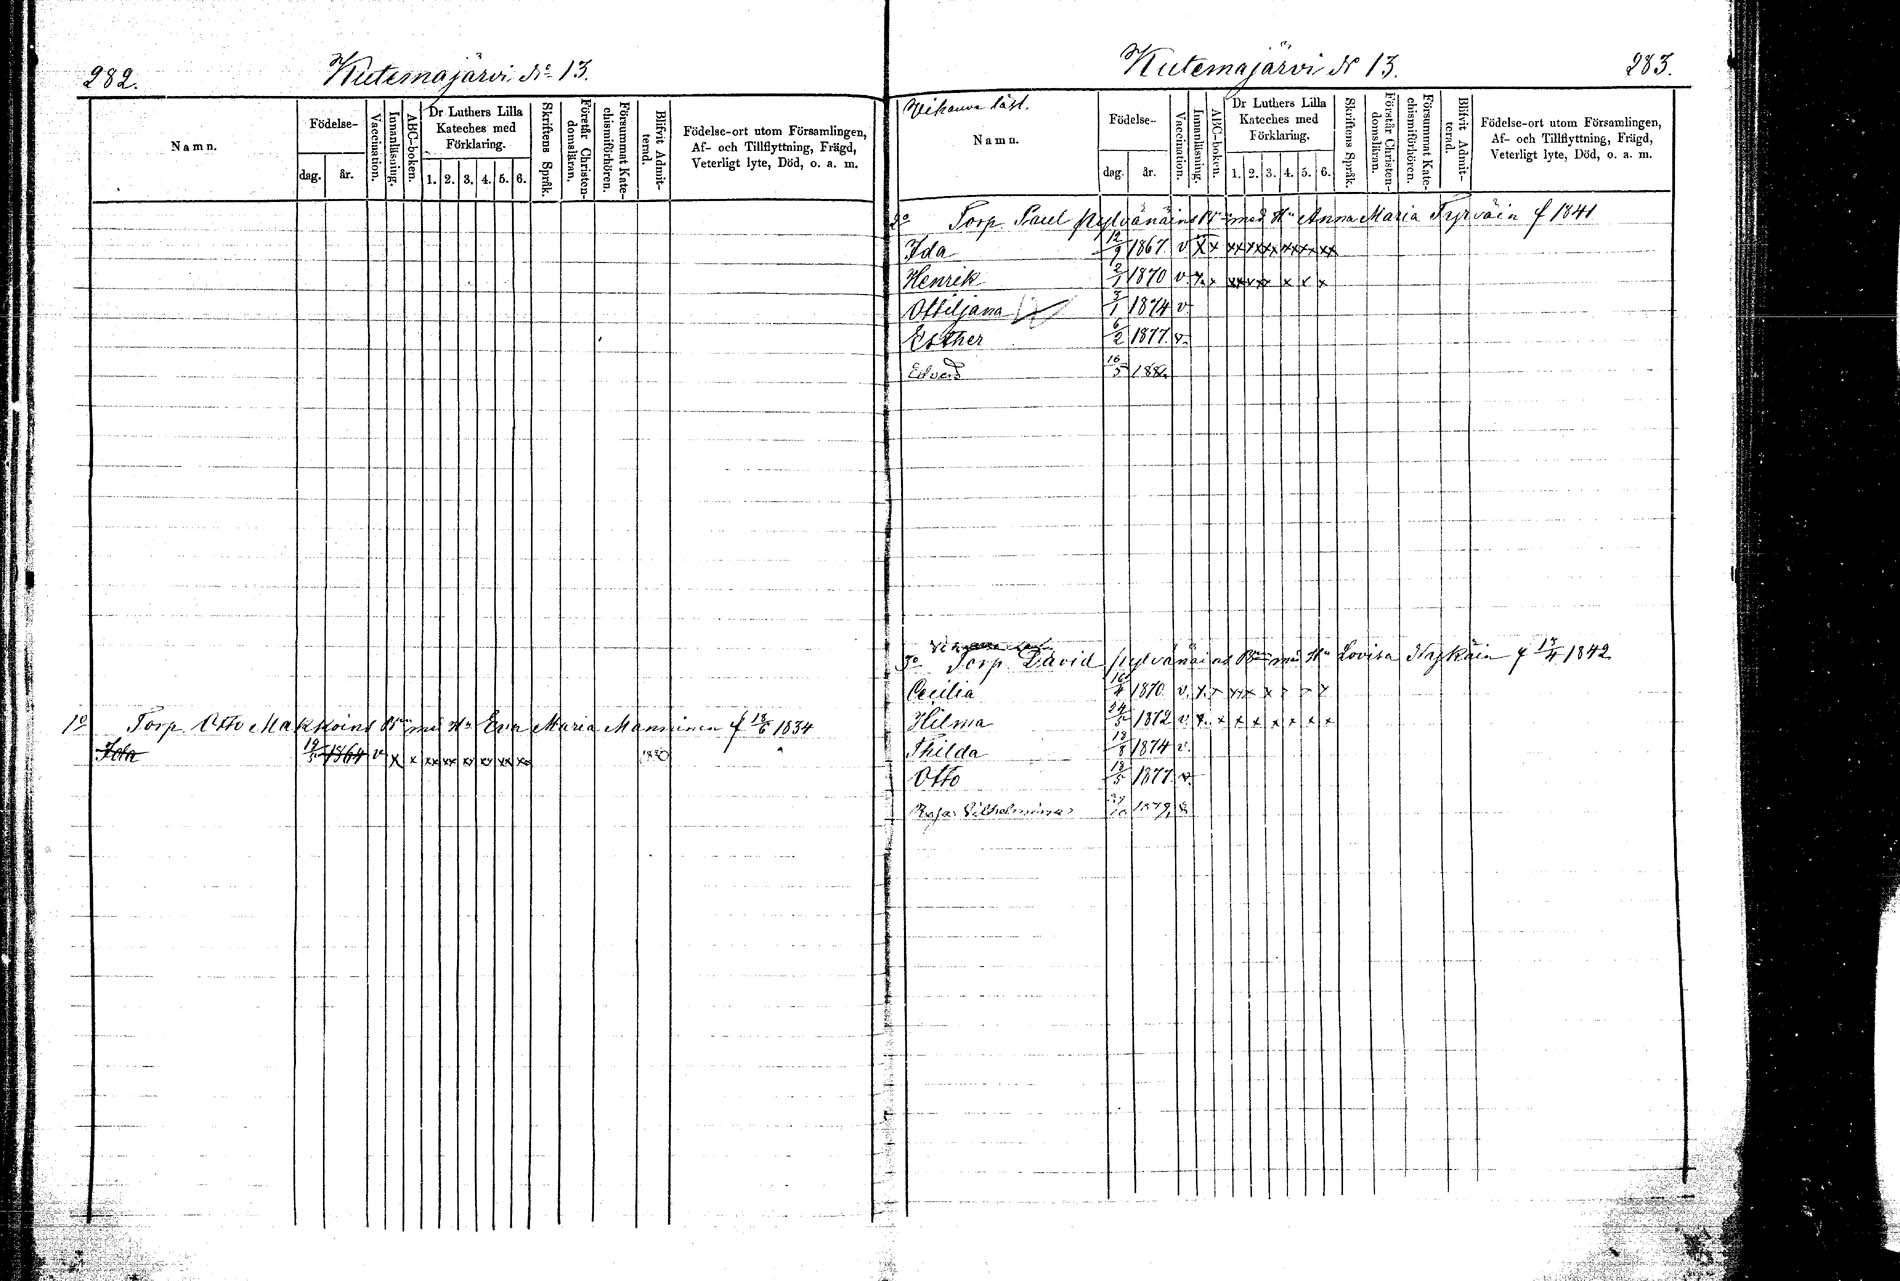 282.
Kutemajärvi No 13.
Namn.
Födelse-
dag.
år.
Vaccination.
Innanläsning.
ABC-boken.
Dr Luthers Lilla
Kateches med
Förklaring.
1. 2. 3. 4. 5. 6.
Skriftens Språk.
Förstår Christen-
domsläran.
Försummat Kate-
chismiförhören.
Blifvit Admit-
terad.
Födelse-ort utom Församlingen,
Af- och Tillflyttning, Frägd,
Veterligt lyte, Död, o. a. m.
1o Torp. Otto Makkoins Bn med Hu Eva Maria Manninen f 18/6 1834
Ida 1864 v x x xx xx xx xx xx xx 1880
Kutemajärvi N 13.
283.
Namn.
Födelse-
dag.
år.
Vaccination.
Innanläsning.
ABC-boken.
Dr Luthers Lilla
Kateches med
Förklaring.
1. 2. 3. 4. 5. 6.
Skriftens Språk.
Förstår Christen-
domsläran.
Försummat Kate-
chismiförhören.
Blifvit Admit-
terad.
Födelse-ort utom Församlingen,
Af- och Tillflyttning, Frägd,
Veterligt lyte, Död, o. a. m.
2o Torp Paul Pylvänäins Bn med Hu Anna Maria Tyrväin f 1841
Ida 12/9 1867 v x x xx xx xx xx xx xx
Henrik 2/1 1870 v x x xx xx xx x x x
Ottiljana 3/1 1874 v
Esther 6/2 1877 v
Edvard 16/5
3o Torp David Pylvänäins Bn med Hu Lovisa f 17/4 1842
Cecilia 16/4 1870 v x x xx x x x x x
Hilma 24/5 1872 v x x x x x x x x
Thilda 18/8 1874 v
Otto 18/5 1877 v
Vilhelmina 1879 v